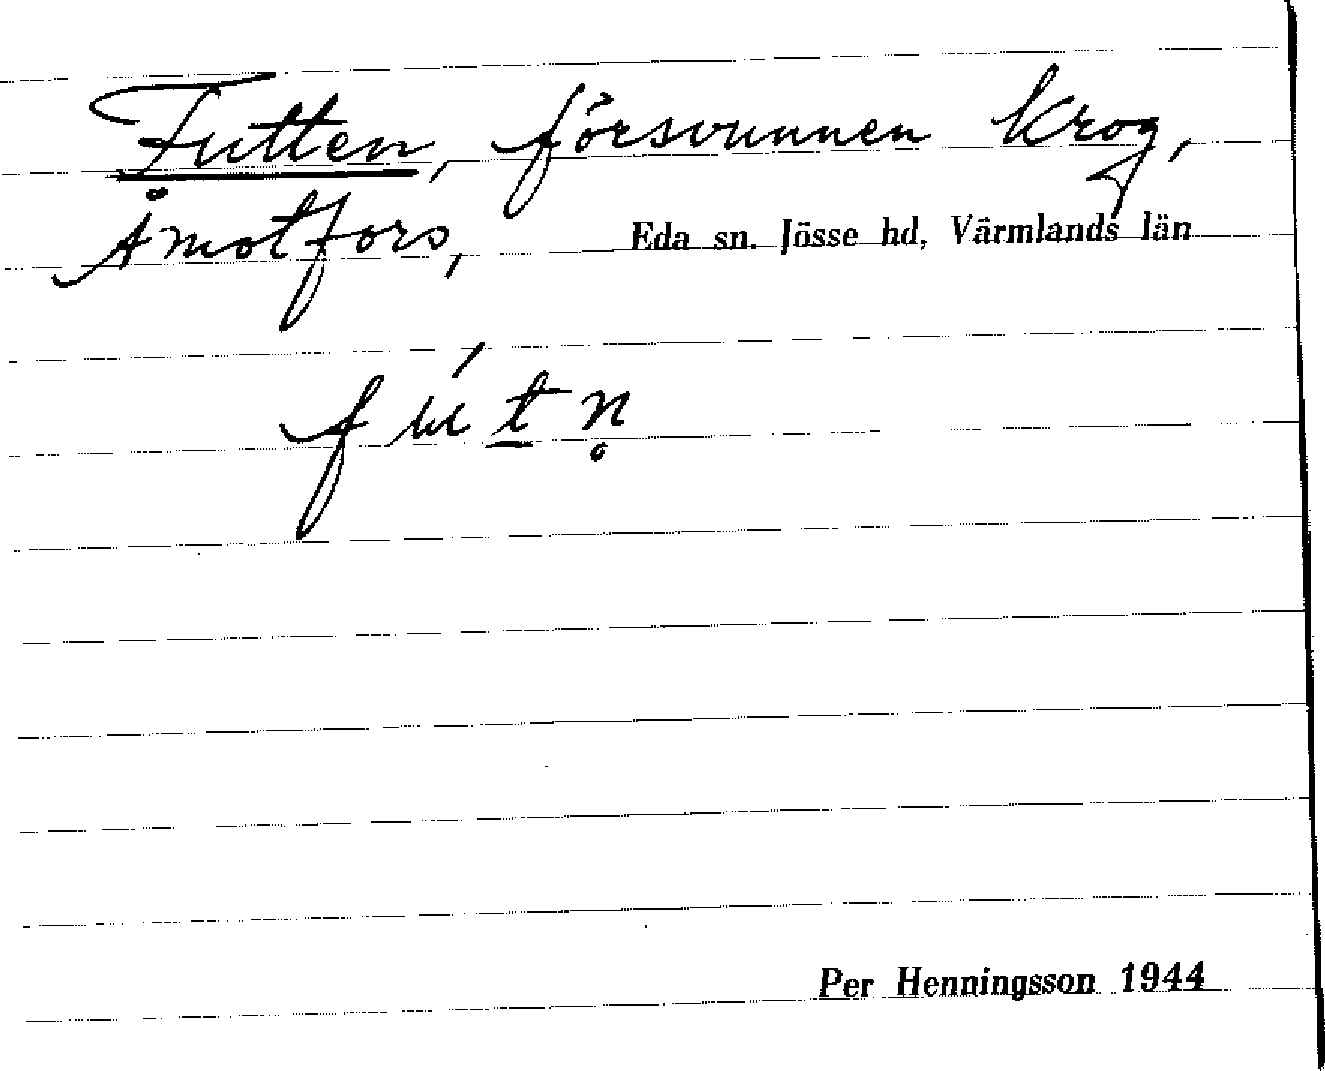 Futten, försvunnen krog,
Åmotfors, Eda sn. Jösse hd, Värmlands län
fút̲n̥
Per Henningsson 1944